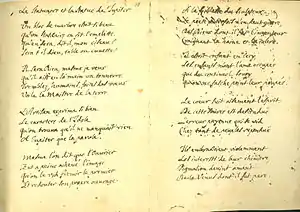 Le Statuaire et la Statue de Jupiter
Un bloc de marbre était si beau
Qu'un Statuaire en fit l'emplette.
Qu'en fera, dit-il, mon ciseau ?
Sera-t-il Dieu, table ou cuvette ?
Il sera Dieu, même je veux
Qu'il ait en la main un tonnerre.
Tremblez, humains, faites des vœux ;
Voilà le Maître de la terre.
L'artisan exprima si bien
Le caractère de l'Idole
Qu'on trouva qu'il ne manquait rien
A Jupiter que la parole.
Même l'on dit que l'ouvrier
Eut à peine achevé l'image
Qu'on le vit frémir le premier
Et redouter son propre ouvrage.
A la faiblesse du Sculpteur
Le poète autrefois n'en dut guère
Des Dieux dont il fut l'inventeur
Craignant la haine et la colère.
Il était enfant en ceci
Les enfants n'ont l'âme occupée
Que du continuel souci
Qu'on ne fâche point leur poupée.
Le cœur suit aisément l'esprit
De cette source est descendue
L'erreur payenne qui se vit
Chez tant de peuples répandue
Ils embrassaient violemment
Les intérêts de leur chimère.
Pygmalion devint amant
De la Vénus dont il fut père.